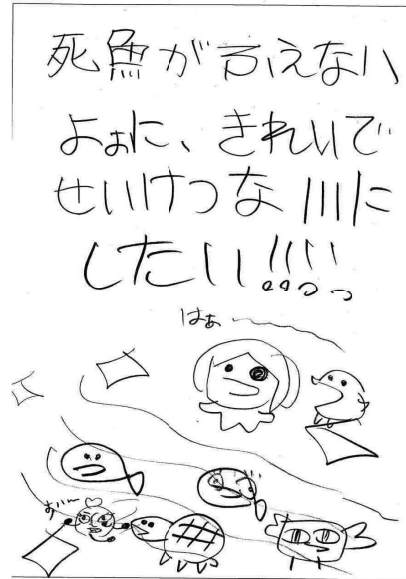 死魚が言えない
よぉに、きれいで
せいけつな川に
したい!!!!
はぁ